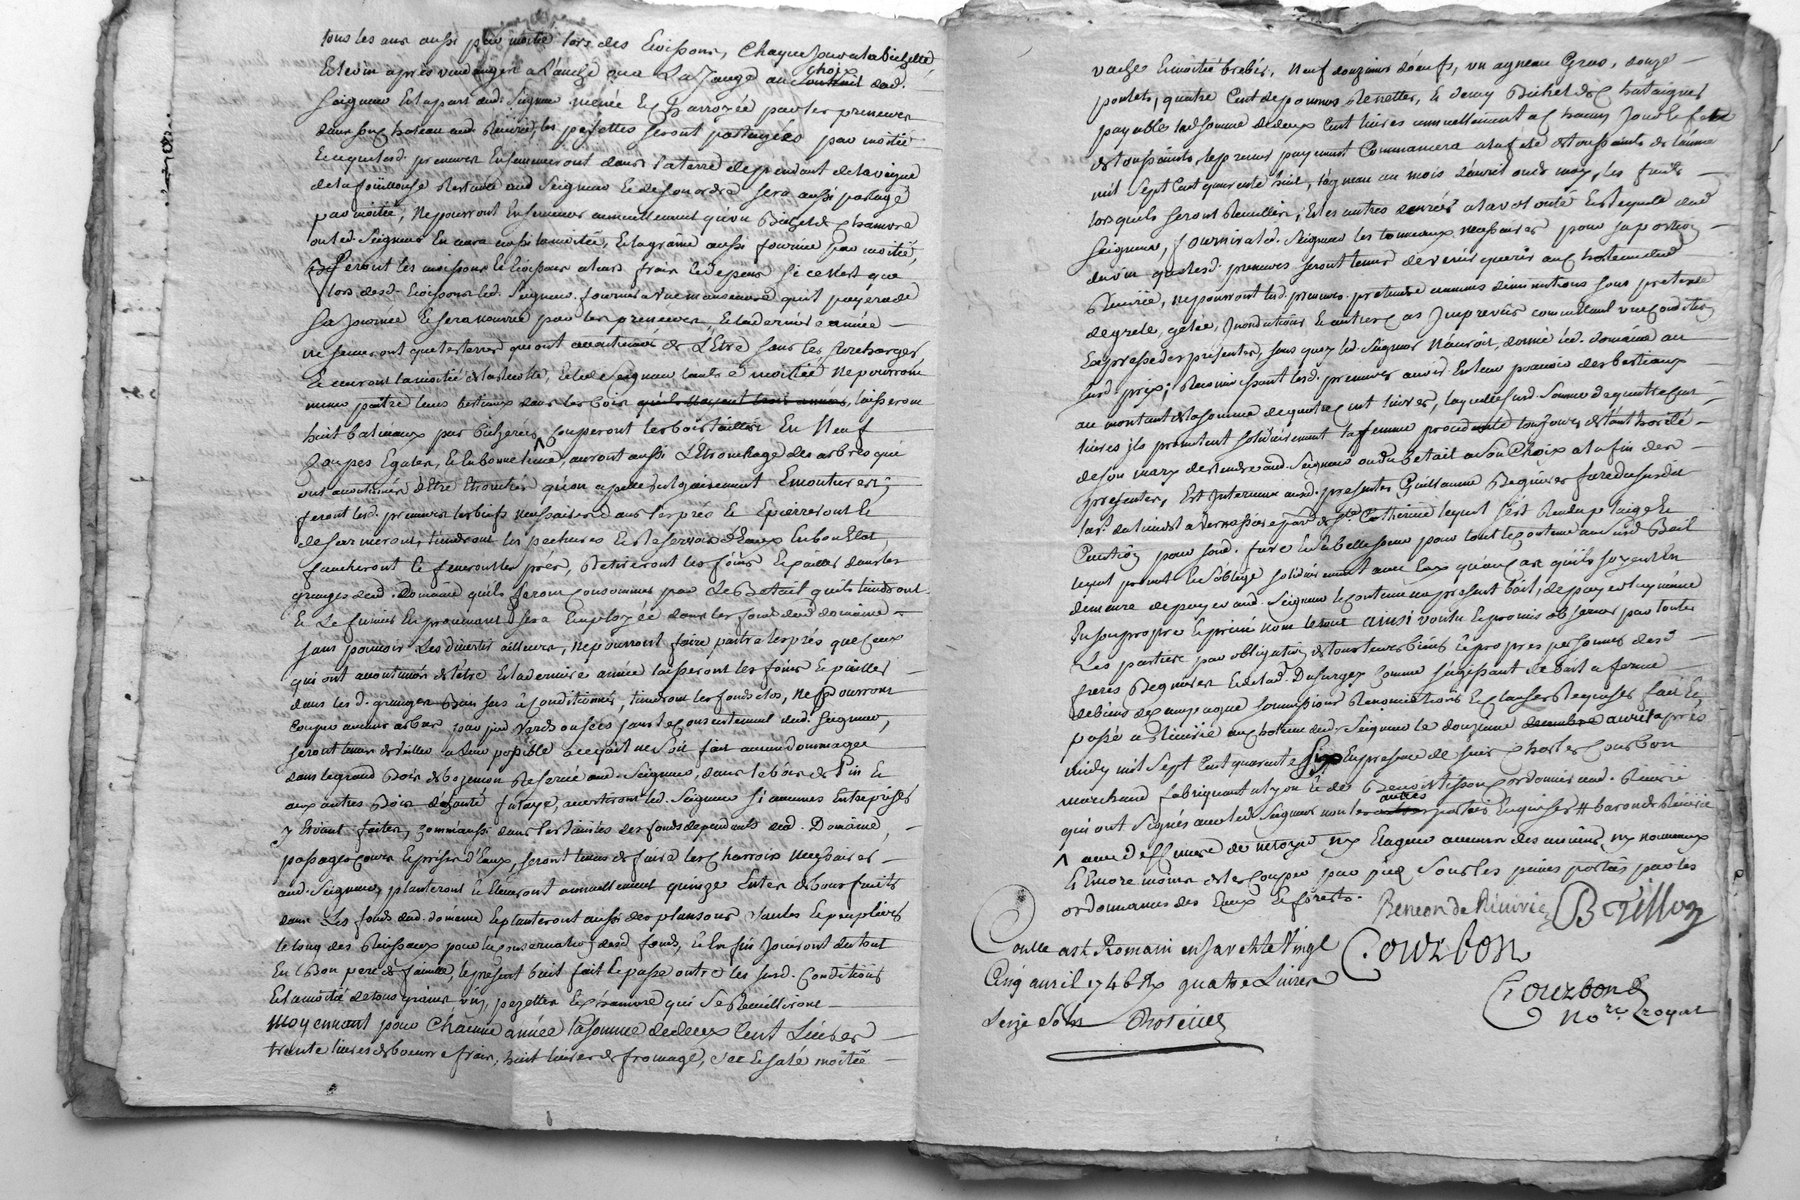 tous les ans aussi par moitié lors des Exissons, Chaque jour a la
Et le vin apres vendanges a la jauge au choix dud.
Seigneur Et la part dud. Seigneur menée Et charroyée par les preneurs
dans son chateau aud. Revirie, les pezettes seront partagées par moitié
Et ce que lesd. preneurs Ensemenceront dans la terre dependant de la vigne
de la foüilleuse sera aussi partagé
par moitié, Ne pourront Ensemencer annuellement qu'un Bichet de chanvre
ont led. Seigneur En aura aussi la moitié, Et la graine aussi fournie par moitié,
feront les moissons Et Exissons a leurs frais Et depens si ce n'est que
lors desd. Exissons led. Seigneur fournira une manoeuvre qu'il payera de
Sa journée Et sera nourrie par les preneurs, Et la derniere année
ne semeront que les terres qui ont accoutumées de L'Etre sans les surcharger,
Et auront la moitié de la recolte, Et led. Seigneur l'autre moitié, Ne pourront
mener paitre leurs bestiaux dans les bois, laisseront
huit baliveaux par Bicherées, Couperont les bois taillis En Neuf
Coupes Egales, Et En bonne lune, auront aussi L'Etronchage des arbres qui
ont accoutumés d'Etre Etronchés qu'on apelle vulgairement Emonturer;
feront lesd. preneurs les biefs necessaires dans les prés Et Epierreront Et
tiendront les pecheries Et reservoirs d'Eaux En bon Etat,
faucheront Et feneront les prés, Retireront les foins Et pailles dans les
granges dud. domaine qu'ils feront consommer par Le Betail qu'ils tiendront
Et Le fumier En provenant sera Employée dans les fonds dud. domaine
sans pouvoir Les divertir ailleurs, Ne pourront faire paitre les prés que ceux
qui ont accoutumés de l'être Et la derniere année laisseront les foins Et pailles
dans lesd. granges, tiendront les fonds clos, Ne pourront
Couper aucuns arbres par pied verds ou secs sans le consentement dud. Seigneur,
seront tenus de veiller a leur possible a ce qu'il ne soit fait aucun dommages
dans le grand Bois de bozemon Reservé aud. Seigneur, dans le bois de Pin Et
aux autres Bois de haute futaye, avertiront led. Seigneur si aucunes Entreprises
y Etoient faites, Comm'aussi dans les limites des fonds dependants dud. Domaine,
passages Cours Et prises d'Eaux, seront tenus de faire les charrois necessaires
aud. Seigneur, planteront Et Eleveront annuellement quinze Entes de bons fruits
dans Les fonds dud. domaine Et planteront aussi des plansons saules Et peupliers
le long des Ruisseaux pour la conservation desd. fonds, Et En fin Jouiront du tout
En Bon pere de famille, le present bail fait Et passé outre les susd. Conditions
Et la moitié de tous grains vin, pezettes Et chanvre qui se Recuilliront
Moyennant pour Chacune année la somme de deux Cent Livres
trente livres de beurre frais, huit livres de fromage, sec Et salé moitié
vache Et moitié brebis, Neuf douzaines d'oeufs, un agneau Gras, douze
poulets, quatre Cent de pommes Renettes, Et demy Bichet de Chataignes
payable lad. somme de deux Cent livres annuellement a chacun Jour Et fete
de toussaints, le premier payement Commancera a la fete de toussaints de l'année
mil Sept Cent quarante huit, l'agneau au mois d'avril ou de may, Les fruits
lors qu'ils seront Recuillis, Et les autres denrées a la volonté Et requete dud.
Seigneur, fournira led. Seigneur les tonneaux necessaires pour sa portion
du vin que lesd. preneurs seront tenus de venir querir au chateau dud.
Reviriée, ne pourront lesd. preneurs pretendre aucunes diminutions sous pretexte
de grele, gelée, Inondations Et autres cas Imprevus comme Etant une condition
Expresse des presentes, sans quoy led. Seigneur N'auroit donné led. domaine au
susd. prix; Reconnoissant lesd. preneurs avoir En leur pouvoir des bestiaux
au montant de la somme de quatre cent livres, laquelle susd. somme de quatre cent
livres ils promettent solidairement la femme procedante toujours de l'authorité
de son mary de rendre aud. Seigneur ou du betail a son Choix a la fin des
presentes, Est Intervenu aud. presentes Guillaume
par. de Ste. Catherine lequel s'est Rendu pleige Et
Caution pour sond. frere Et sa belle soeur pour tout le contenu au susd. Bail
lequel promet Et s'oblige solidairement avec Eux qu'au cas qu'ils soyent En
demeure de payer aud. Seigneur le contenu au present bail, de payer luy même
En son propre Et privé nom le tout ainsi voulu Et promis observer par toutes
Les parties par obligation de tous leurs biens Et propres personnes desd.
freres Et de lad. Dufurgez comme s'agissant de Bail a ferme
de biens de campagne soumissions Renonciations Et Clauses Requises fait Et
passé a Riviriée au chateau dud. Seigneur le douzieme avril après
midy mil Sept Cent quarante Six En presence de sieur Charles Courbon
marchand fabriquant a Lyon Et de Cordonnier aud. Reverié
qui ont signés avec led. Seigneur non les autres parties Enquises # baron de Riviriee
^ avec deffences de netoyer ny Elaguer aucun des anciens ny nouveaux
Et Encore moins de les couper par pied sous les peines portées par les
ordonnances des Eaux Et forests.
Beneon de Riviriée
Brillon
Courbon
Conllé a St. Romain en Jarest le Vingt
Cinq avril 1746 Rx quatre Livres
Seize sols
Courbon
Nore. Royal